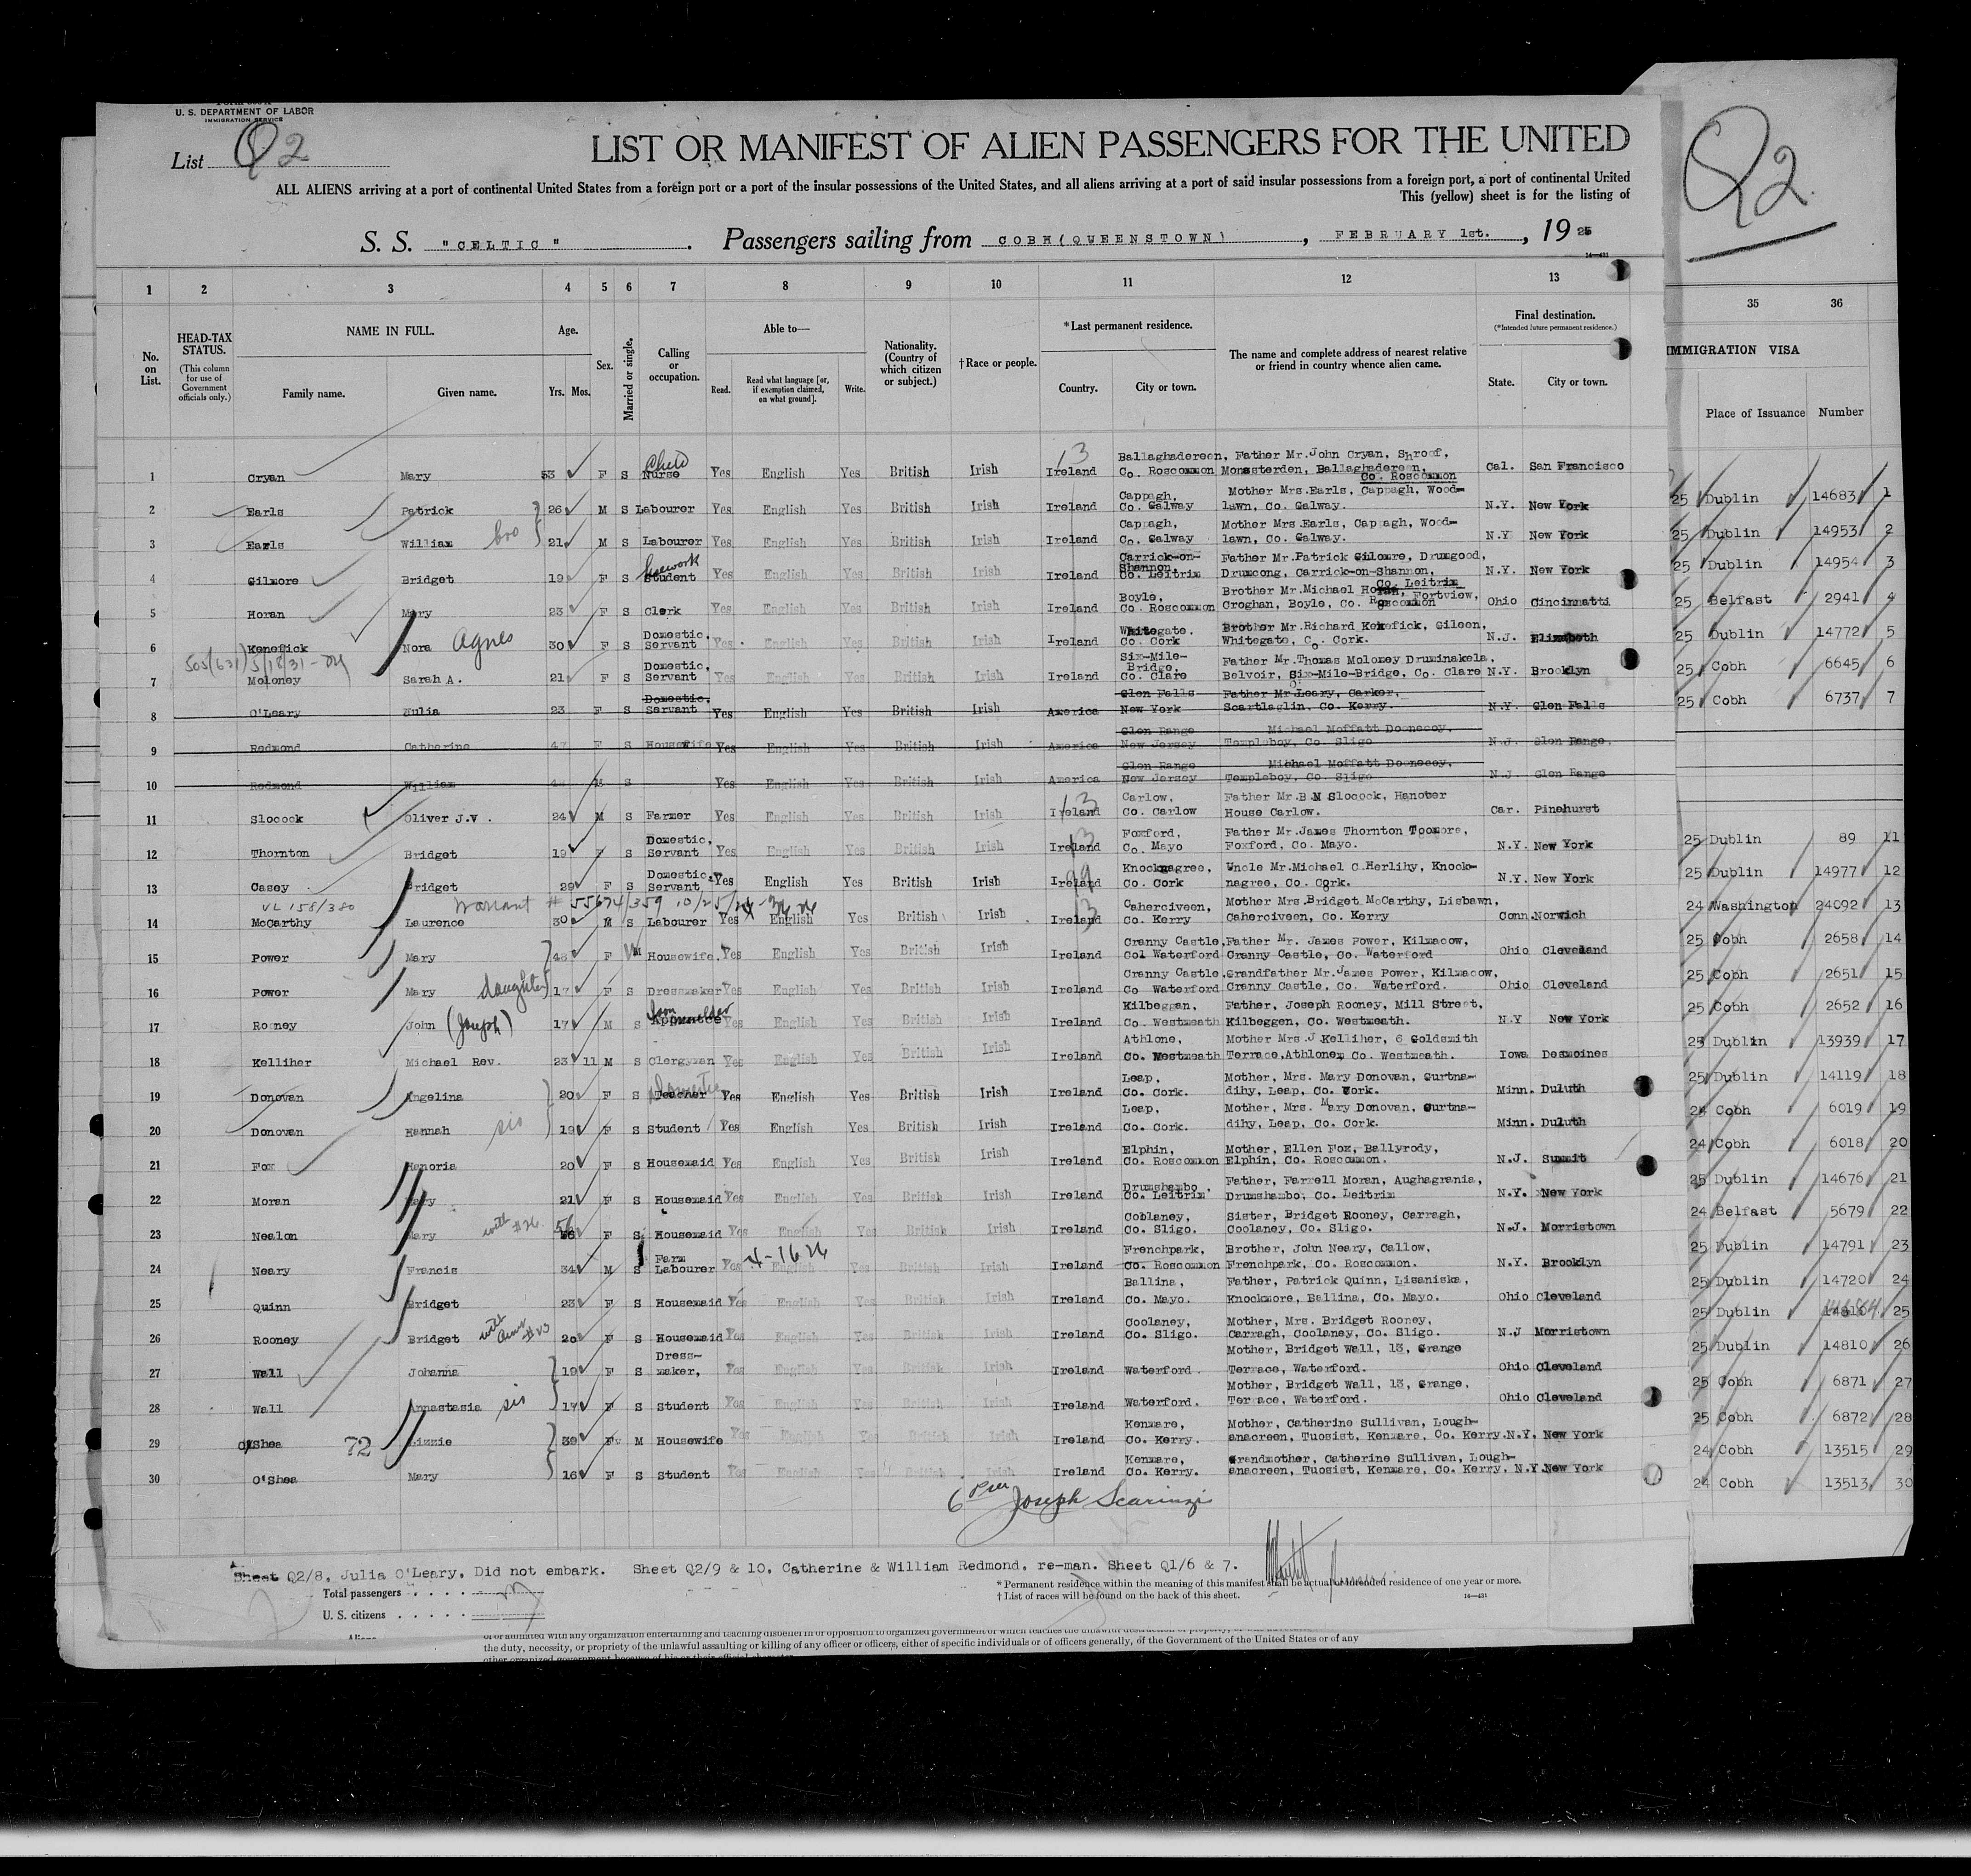 U. S. DEPARTMENT OF LABOR
IMMIGRATION SERVICE
List Q2
LIST OR MANIFEST OF ALIEN PASSENGERS FOR THE UNITED
ALL ALIENS arriving at a port of continental United States from a foreign port or a port of the insular possessions of the United States, and all aliens arriving at a port of said insular possessions from a foreign port, a port of continental United
This (yellow) sheet is for the listing of
S. S. "CELTIC" . Passengers sailing from COBH (QUEENSTOWN) , FEBRUARY 1st. , 19 25
14—431
Q2.
1 2 3 4 5 6 7 8 9 10 11 12 13 35 36
No. on List.
HEAD-TAX STATUS.
(This column for use of Government officials only.)
NAME IN FULL.
Family name. Given name.
Age.
Yrs. Mos.
Sex.
Married or single.
Calling or occupation.
Able to—
Read. Read what language [or, if exemption claimed, on what ground]. Write.
Nationality. (Country of which citizen or subject.)
†Race or people.
*Last permanent residence.
Country. City or town.
The name and complete address of nearest relative or friend in country whence alien came.
Final destination.
(*Intended future permanent residence.)
State. City or town.
IMMIGRATION VISA
Place of Issuance Number
1 Cryan Mary 53 F S Child Nurse Yes English Yes British Irish Ireland Ballaghadereen, Co. Roscommon Father Mr. John Cryan, Shroof, Monasterden, Ballaghadereen, Co. Roscommon Cal. San Francisco
2 Earls Patrick 26 M S Labourer Yes English Yes British Irish Ireland Cappagh, Co. Galway Mother Mrs. Earls, Cappagh, Wood-lawn, Co. Galway. N.Y. New York
3 Earls William bro 21 M S Labourer Yes English Yes British Irish Ireland Cappagh, Co. Galway Mother Mrs Earls, Cappagh, Wood-lawn, Co. Galway. N.Y New York
4 Gilmore Bridget 19 F S Student Yes English Yes British Irish Ireland Carrick-on-Shannon Co. Leitrim Father Mr. Patrick Gilomre, Drumgood, Drumcong, Carrick-on-Shannon, Co. Leitrim N.Y. New York
5 Horan Mary 23 F S Clerk Yes English Yes British Irish Ireland Boyle, Co. Roscommon Brother Mr. Michael Horan, Fortview, Croghan, Boyle, Co. Roscommon Ohio Cincinnatti
6 Kenefick Nora Agnes 30 F S Domestic, Servant Yes English Yes British Irish Ireland Whitegate. Co. Cork Brother Mr. Richard Kenefick, Gileen, Whitegate, Co. Cork. N.J. Elizabeth
7 Moloney Sarah A. 21 F S Domestic, Servant Yes English Yes British Irish Ireland Six-Mile-Bridge, Co. Clare Father Mr. Thomas Moloney Druminakela, Belvoir, Six-Mile-Bridge, Co. Clare N.Y. Brooklyn
8 O'Leary Julia 23 F S Domestic, Servant Yes English Yes British Irish America Glen Falls New York Father Mr Leary, Carker, Scartlaglin, Co. Kerry. N.Y. Glen Falls
9 Redmond Catherine 47 F S Housewife Yes English Yes British Irish America Glen Range New Jersey Michael Moffatt Doonecoy, Templeboy, Co. Sligo N.J. Glen Range.
10 Redmond William M S Yes English Yes British Irish America Glen Range New Jersey Michael Moffatt Doonecoy, Templeboy, Co. Sligo N.J. Glen Range
11 Slocock Oliver J.V. 24 M S Farmer Yes English Yes British Irish Ireland Carlow, Co. Carlow Father Mr. B N Slocock, Hanover House Carlow. Car. Pinehurst
12 Thornton Bridget 19 F S Domestic, Servant Yes English Yes British Irish Ireland Foxford, Co. Mayo Father Mr. James Thornton Toomore, Foxford, Co. Mayo. N.Y. New York
13 Casey Bridget 29 F S Domestic, Servant, Yes English Yes British Irish Ireland Knocknagree, Co. Cork Uncle Mr. Michael C. Herlihy, Knock-nagree, Co. Cork. N.Y. New York
14 McCarthy Laurence 30 M S Labourer Yes English Yes British Irish Ireland Caherciveen, Co. Kerry Mother Mrs. Bridget McCarthy, Lisbawn, Caherciveen, Co. Kerry Conn. Norwich
15 Power Mary 48 F M Housewife. Yes English Yes British Irish Ireland Cranny Castle, Col Waterford Father Mr. James Power, Kilmacow, Cranny Castle, Co. Waterford Ohio Cleveland
16 Power Mary daughter 17 F S Dressmaker Yes English Yes British Irish Ireland Cranny Castle. Co Waterford Grandfather Mr. James Power, Kilmacow, Cranny Castle, Co. Waterford. Ohio Cleveland
17 Rooney John (Joseph) 17 M S Yes English Yes British Irish Ireland Kilbeggan, Co. Westmeath Father, Joseph Rooney, Mill Street, Kilbeggen, Co. Westmeath. N.Y New York
18 Kelliher Michael Rev. 23 11 M S Clergyman Yes English Yes British Irish Ireland Athlone, Co. Westmeath Mother Mrs. J Kelliher, 6 Goldsmith Terrace, Athlone, Co. Westmeath. Iowa Desmoines
19 Donovan Angelina 20 F S Domestic Teacher Yes English Yes British Irish Ireland Leap, Co. Cork. Mother, Mrs. Mary Donovan, Gurtna-dihy, Leap, Co. Cork. Minn. Duluth
20 Donovan Hannah sis 19 F S Student Yes English Yes British Irish Ireland Leap, Co. Cork. Mother, Mrs. Mary Donovan, Gurtna-dihy, Leap, Co. Cork. Minn. Duluth
21 Fox Honoria 20 F S Housemaid Yes English Yes British Irish Ireland Elphin, Co. Roscommon Mother, Ellen Fox, Ballyrody, Elphin, Co. Roscommon. N.J. Summit
22 Moran Mary 21 F S Housemaid Yes English Yes British Irish Ireland Drumshambo. Co. Leitrim Father, Farrell Moran, Aughagrania, Drumshambo, Co. Leitrim N.Y. New York
23 Nealon Mary with #26. 56 F S Housemaid Yes English Yes British Irish Ireland Coblaney, Co. Sligo. Sister, Bridget Rooney, Carragh, Coolaney, Co. Sligo. N.J. Morristown
24 Neary Francis 34 M S Farm Labourer Yes English Yes British Irish Ireland Frenchpark, Co. Roscommon Brother, John Neary, Callow, Frenchpark, Co. Roscommon. N.Y. Brooklyn
25 Quinn Bridget 23 F S Housemaid Yes English Yes British Irish Ireland Ballina, Co. Mayo. Father, Patrick Quinn, Lisaniska, Knockmore, Ballina, Co. Mayo. Ohio Cleveland
26 Rooney Bridget with Aunt #23 20 F S Housemaid Yes English Yes British Irish Ireland Coolaney, Co. Sligo. Mother, Mrs. Bridget Rooney, Carragh, Coolaney, Co. Sligo. N.J Morristown
27 Wall Johanna 19 F S Dress-maker, Yes English Yes British Irish Ireland Waterford. Mother, Bridget Wall, 13, Grange Terrace, Waterford. Ohio Cleveland
28 Wall Annastasia sis 17 F S Student Yes English Yes British Irish Ireland Waterford. Mother, Bridget Wall, 13, Grange, Terrace, Waterford. Ohio Cleveland
29 O'Shea 72 Lizzie 39 F M Housewife Yes English Yes British Irish Ireland Kenmare, Co. Kerry. Mother, Catherine Sullivan, Lough-anacreen, Tuosist, Kenmare, Co. Kerry. N.Y. New York
30 O'Shea Mary 16 F S Student Yes English Yes British Irish Ireland Kenmare, Co. Kerry. Grandmother, Catherine Sullivan, Lough-anacreen, Tuosist, Kenmare, Co. Kerry, N.Y. New York
25 Dublin 14683 1
25 Dublin 14953 2
25 Dublin 14954 3
25 Belfast 2941 4
25 Dublin 14772 5
25 Cobh 6645 6
25 Cobh 6737 7
25 Dublin 89 11
25 Dublin 14977 12
24 Washington 24092 13
25 Cobh 2658 14
25 Cobh 2651 15
25 Cobh 2652 16
25 Dublin 13939 17
25 Dublin 14119 18
25 Cobh 6019 19
24 Cobh 6018 20
25 Dublin 14676 21
24 Belfast 5679 22
25 Dublin 14791 23
25 Dublin 14720 24
25 Dublin 25
25 Dublin 14810 26
25 Cobh 6871 27
25 Cobh 6872 28
24 Cobh 13515 29
24 Cobh 13513 30
Joseph Scarinzi
Sheet Q2/8, Julia O'Leary, Did not embark. Sheet Q2/9 & 10, Catherine & William Redmond, re-man. Sheet Q1/6 & 7.
Total passengers
U. S. citizens
* Permanent residence within the meaning of this manifest shall be actual or intended residence of one year or more.
† List of races will be found on the back of this sheet.
14—431
the duty, necessity, or propriety of the unlawful assaulting or killing of any officer or officers, either of specific individuals or of officers generally, of the Government of the United States or of any